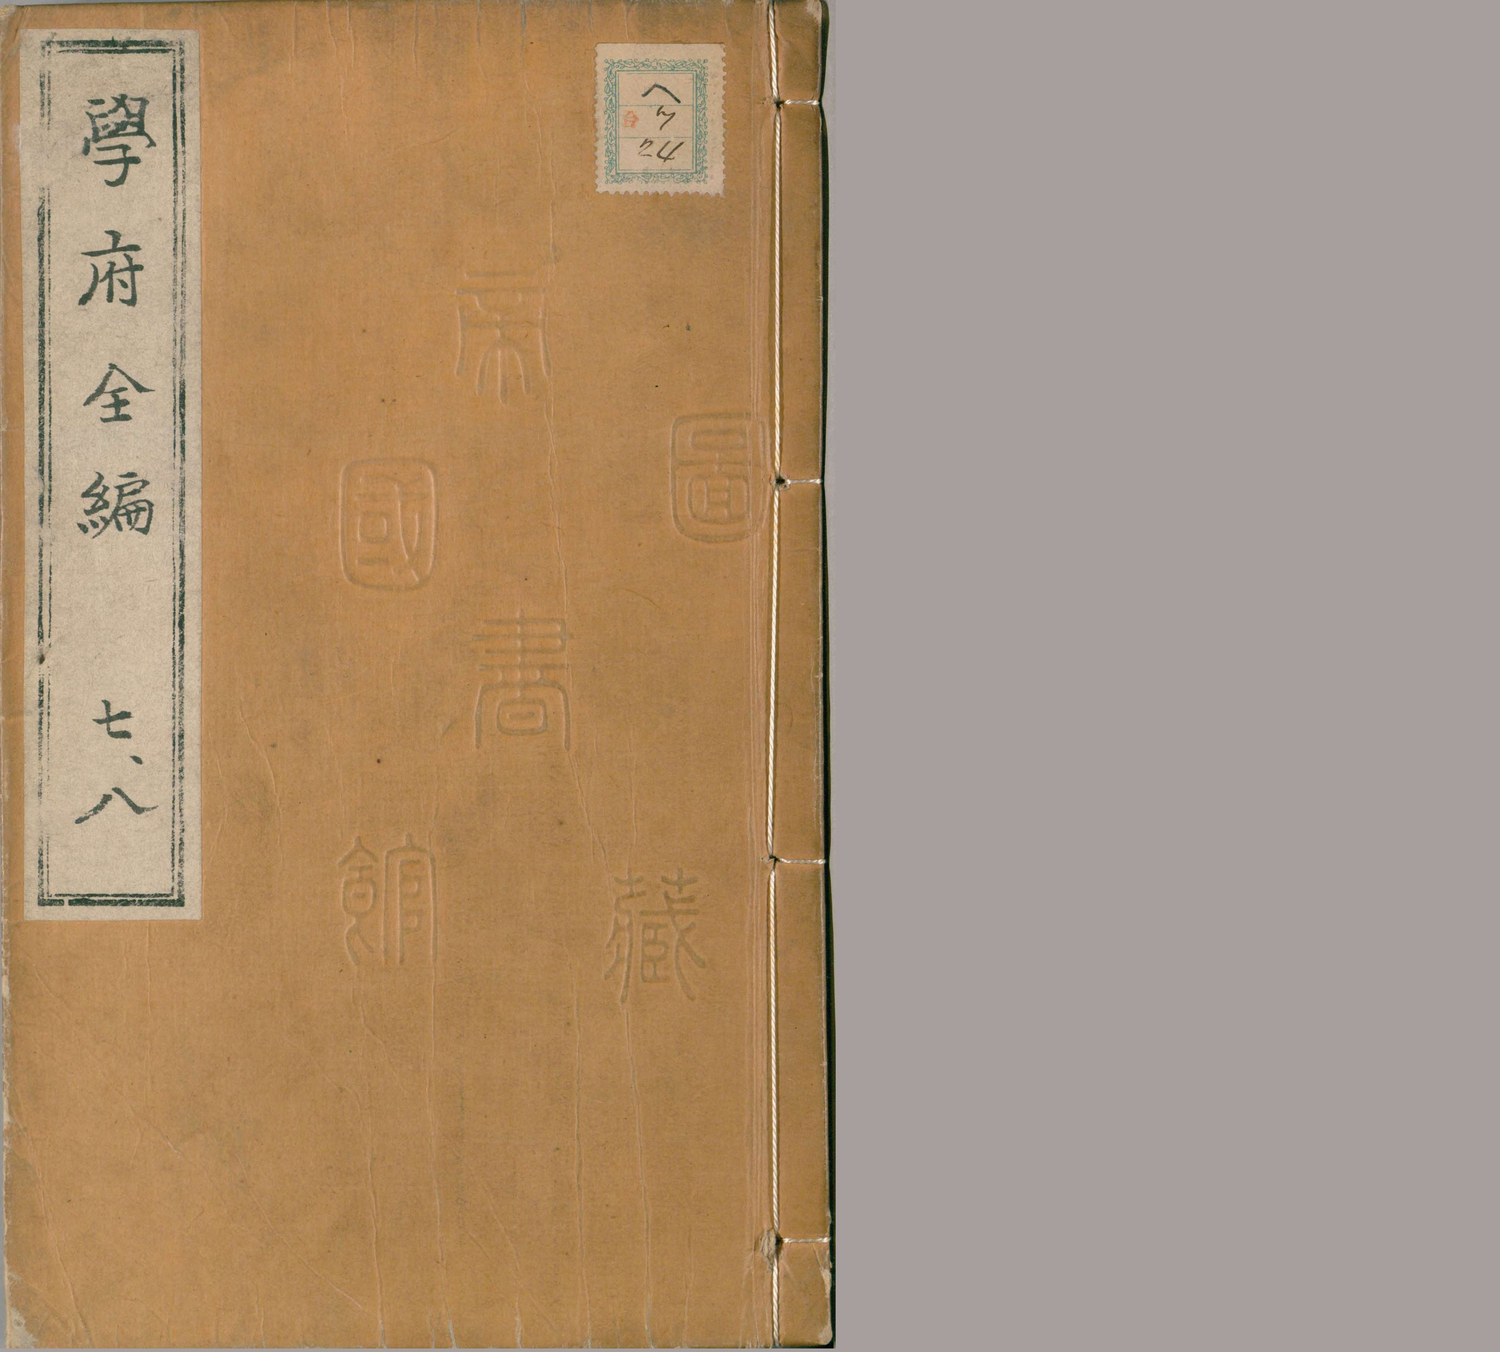 學府全編 七、八
ヘ
ク
24
帝國圖書館藏